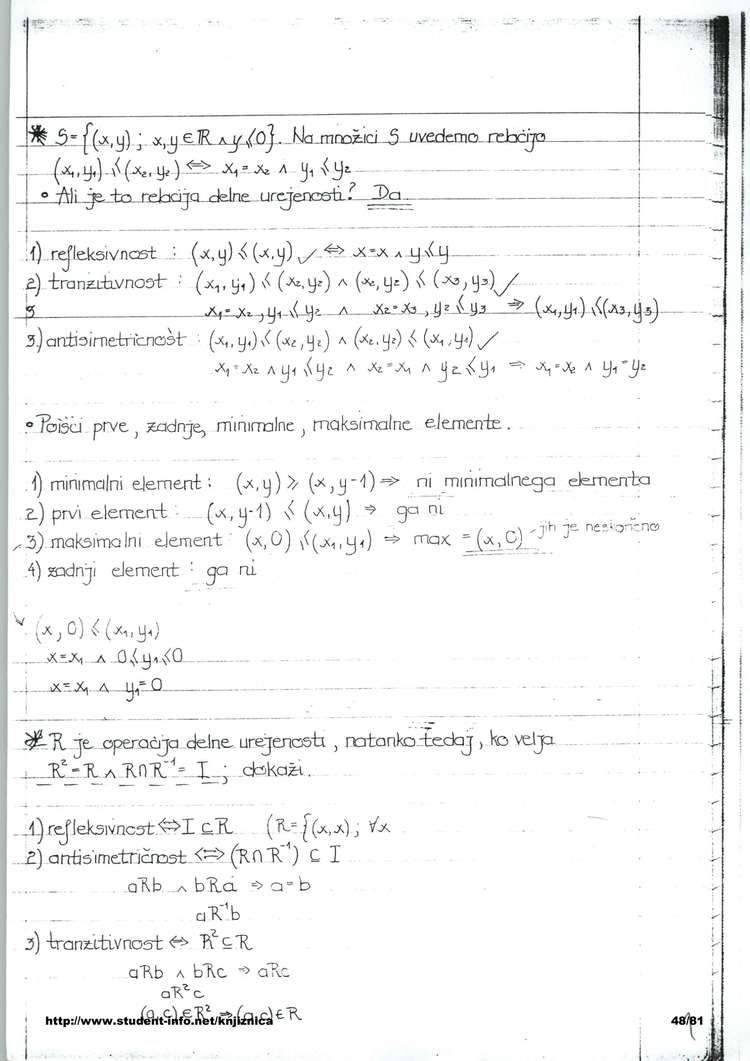 * S={(x,y); x,y∈ℝ ∧ y≤0}. Na množici S uvedemo relacijo
(x₁,y₁)≤(x₂,y₂) ⇔ x₁=x₂ ∧ y₁≤y₂
• Ali je to relacija delne urejenosti? Da
1) refleksivnost : (x,y)≤(x,y) ✓ ⇔ x=x ∧ y≤y
2) tranzitivnost : (x₁,y₁)≤(x₂,y₂) ∧ (x₂,y₂)≤(x₃,y₃) ✓
x₁=x₂, y₁≤y₂ ∧ x₂=x₃, y₂≤y₃ ⇒ (x₁,y₁)≤(x₃,y₃)
3.) antisimetričnost : (x₁,y₁)≤(x₂,y₂) ∧ (x₂,y₂)≤(x₁,y₁) ✓
x₁=x₂ ∧ y₁≤y₂ ∧ x₂=x₁ ∧ y₂≤y₁ ⇒ x₁=x₂ ∧ y₁=y₂
• Poišči prve, zadnje, minimalne, maksimalne elemente.
1) minimalni element : (x,y)≥(x,y-1) ⇒ ni minimalnega elementa
2) prvi element : (x,y-1)≤(x,y) ⇒ ga ni
3) maksimalni element : (x,0)≤(x₁,y₁) ⇒ max = (x,0) - jih je neskončno
4) zadnji element : ga ni
(x,0)≤(x₁,y₁)
x=x₁ ∧ 0≤y₁≤0
x=x₁ ∧ y₁=0
* R je operacija delne urejenosti, natanko tedaj, ko velja
R²=R ∧ R∩R⁻¹=I ; dokaži.
1) refleksivnost ⇔ I⊆R (R={(x,x); ∀x
2) antisimetričnost ⇔ (R∩R⁻¹)⊆I
aRb ∧ bRa ⇒ a=b
aR⁻¹b
3) tranzitivnost ⇔ R²⊆R
aRb ∧ bRc ⇒ aRc
aR²c
(a,c)∈R² ⇒ (a,c)∈R
http://www.student-info.net/knjiznica 48/81